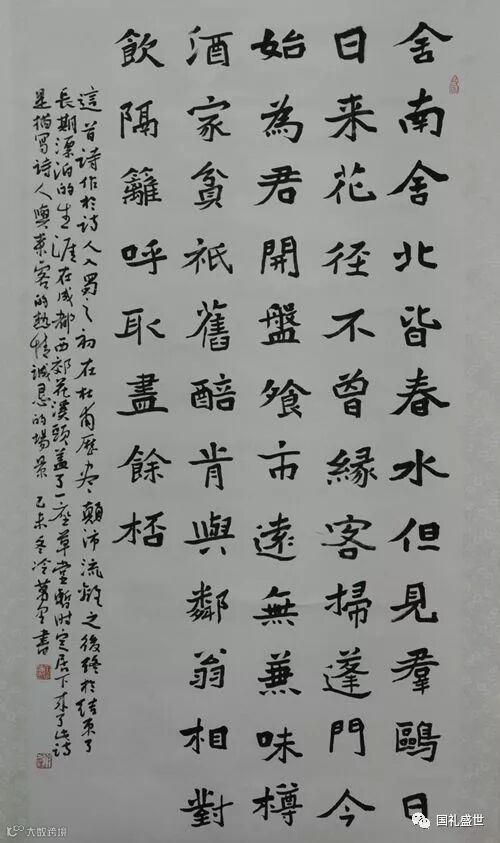 舍南舍北皆春水但見羣鷗日
日来花径不曾緣客掃蓬門今
始為君開盤飧市遠無兼味樽
酒家貧祇舊醅肯與鄰翁相對
飲隔籬呼取盡餘桮
這首詩作於詩人入蜀之初在杜甫歷尽顛沛流離之後終於结束了
長期漂泊的生涯在成都西郊花溪頭盖了一座草堂暫时定居下来了此诗
是描写詩人與来客的热情诚恳的場景 己未冬冷萬里書
大数跨境
国礼盛世